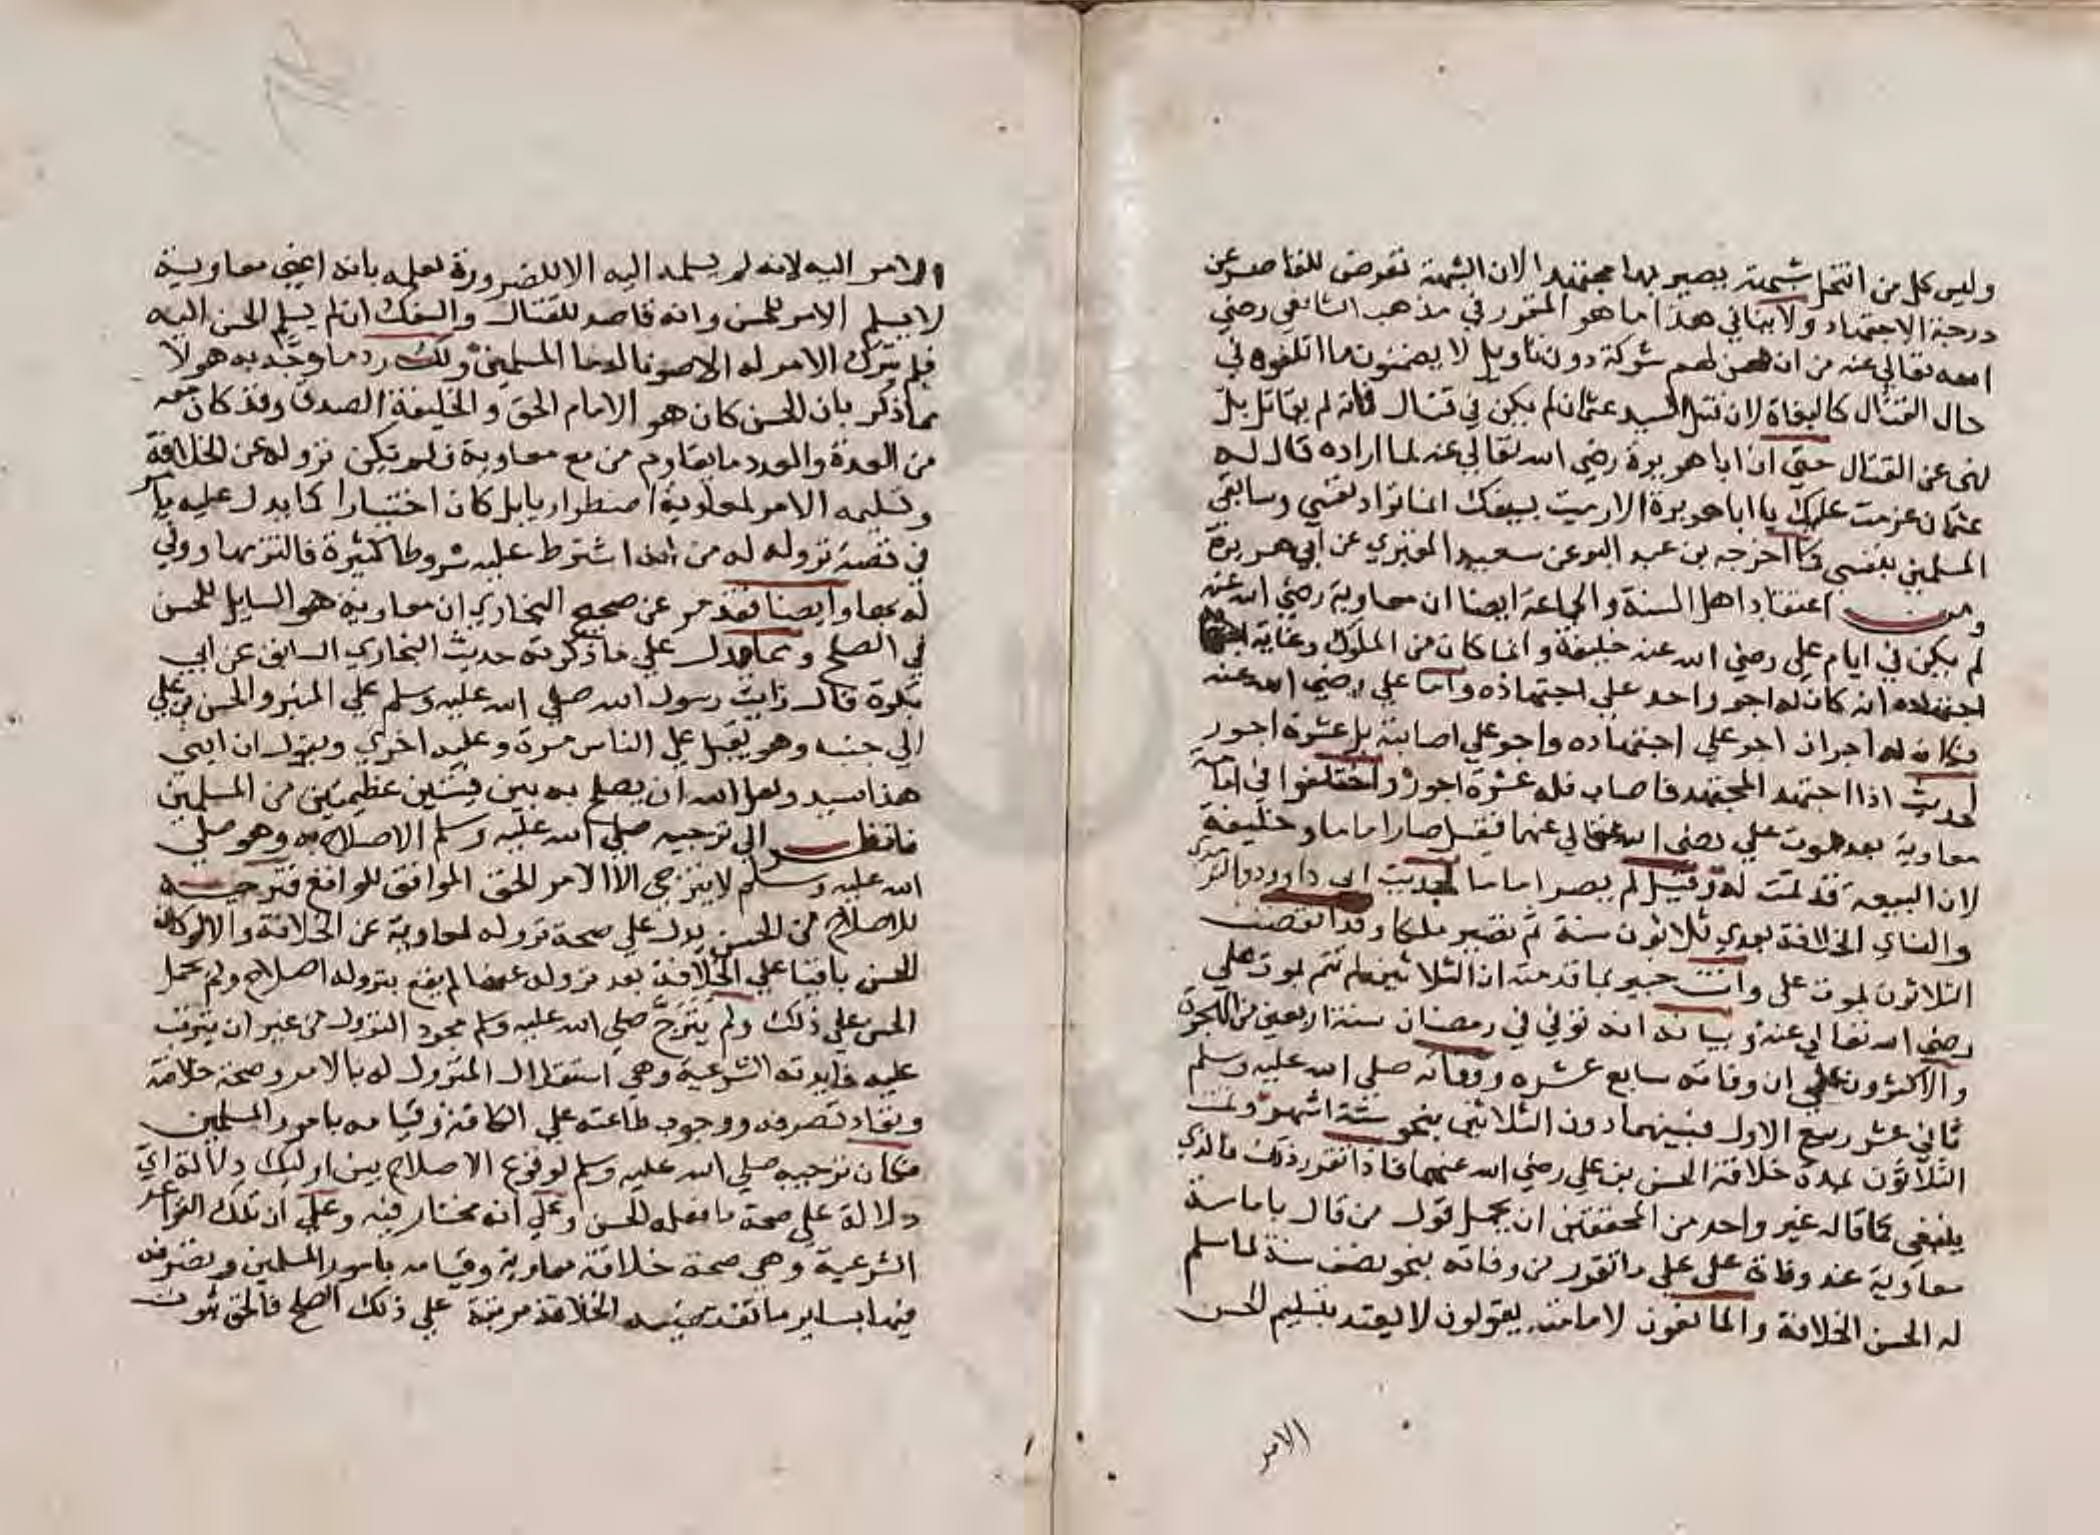 وليس كل من انتحل شبهة يصير بها مجتهدا لان الشبهة تعرض للقاصر عن
درجة الاجتهاد ولا ينافي هذا ما هو المقرر في مذهب الشافعي رضي
الله تعالي عنه من ان لهم شوكة دون تاويل لا يضمنون ما اتلفوه في
حال القتال كالبغاة لان قتل السيد عثمان لم يكن في قتال فانه لم يقاتل بل
نهى عن القتال حتي ان ابا هريرة رضي الله تعالي عنه لما اراده قال له
عثمان عزمت عليك يا ابا هريرة الا رميت بسيفك انما تراد نفسي وساقي
المسلمين بنفسي كما اخرجه بن عبد البر عن سعيد المقبري عن ابي هريرة
ومن اعتقاد اهل السنة والجماعة ايضا ان معاوية رضي الله عنه
لم يكن في ايام علي رضي الله عنه خليفة وانما كان من الملوك وغاية
اجتهاده انه كان له اجر واحد علي اجتهاده واما علي رضي الله عنه
فكان له اجران اجر علي اجتهاده واجر علي اصابته بل عشرة اجور
لحديث اذا اجتهد المجتهد فاصاب فله عشرة اجور واختلفوا في امامة
معاوية بعد موت علي رضي الله تعالي عنهما فقيل صار اماما وخليفة
لان البيعة قد تمت له وقيل لم يصر اماما لحديث ابي داوود والترمذي
والنساي الخلافة بعدي ثلاثون سنة ثم تصير ملكا وقد انقضت
الثلاثون بموت علي وانت خبير بما قدمته ان الثلاثين لم تتم بموت علي
رضي الله تعالي عنه وبيانه انه توفي في رمضان سنة اربعين من الهجرة
والاكثرون علي ان وفاته سابع عشره ووفاته صلي الله عليه وسلم
ثاني عشر ربيع الاول فبينهما دون الثلاثين بنحو ستة اشهر وتمت
الثلاثون بمدة خلافة الحسن بن علي رضي الله عنهما فاذا تقرر ذلك فالذي
ينبغي كما قاله غير واحد من المحققين ان يحمل قول من قال بامامة
معاوية عند وفاة علي علي ما تقرر من وفاته بنحو نصف سنة لما سلم
له الحسن الخلافة والمانعون لامامته يقولون لا يعتد بتسليم الحسن
الامر
الامر اليه لانه لم يسلمه اليه الا للضرورة لعلمه بانه اعني معاوية
لا يسلم الامر للحسن وانه قاصد للقتال والسفك ان لم يسلم الحسن اليه
فلم يترك الامر له الا صونا لدما المسلمين ولك رد ما وجه به هولا
مما ذكر بان الحسن كان هو الامام الحق والخليفة الصدق وقد كان معه
من العدة والعدد ما يقاوم من مع معاوية فلم يكن نزوله عن الخلافة
وتسليمه الامر لمعاوية اضطراريا بل كان اختياريا كما يدل عليه ما مر
في قصة نزوله له من انه اشترط عليه شروطا كثيرة فالتزمها ووفي
له بها وايضا فقد مر عن صحيح البخاري ان معاوية هو السايل للحسن
في الصلح ومما يدل علي ما ذكرته حديث البخاري السابق عن ابي
بكرة قال رايت رسول الله صلي الله عليه وسلم علي المنبر والحسن بن علي
الي جنبه وهو يقبل علي الناس مرة وعليه اخري ويقول ان ابني
هذا سيد ولعل الله ان يصلح به بين فئتين عظيمتين من المسلمين
فانظر الي ترجيه صلي الله عليه وسلم الاصلاح به وهو صلي
الله عليه وسلم لا يترجي الا الامر الحق الموافق للواقع فترجيه
للاصلاح من الحسن يدل علي صحة نزوله لمعاوية عن الخلافة والا لو كان
الحسن باقيا علي الخلافة بعد نزوله عنها لم يقع بنزوله اصلاح ولم يحمد
الحسن علي ذلك ولم يترج صلي الله عليه وسلم مجرد النزول من غير ان يترتب
عليه فايدته الشرعية وهي استقلال المنزول له بالامر وصحة خلافته
ونفاد تصرفه ووجوب طاعته علي الكافة وقيامه بامور المسلمين
فكان ترجيه صلي الله عليه وسلم لوقوع الاصلاح بين اوليك دلالة اي
دلالة علي صحة ما فعله الحسن وعلي انه مختار فيه وعلي ان تلك الفوايد
الشرعية وهي صحة خلافة معاوية وقيامه بامور المسلمين وتصرفه
فيها بساير ما تقتضيه الخلافة مرتبة علي ذلك الصلح فالحق ثبوت